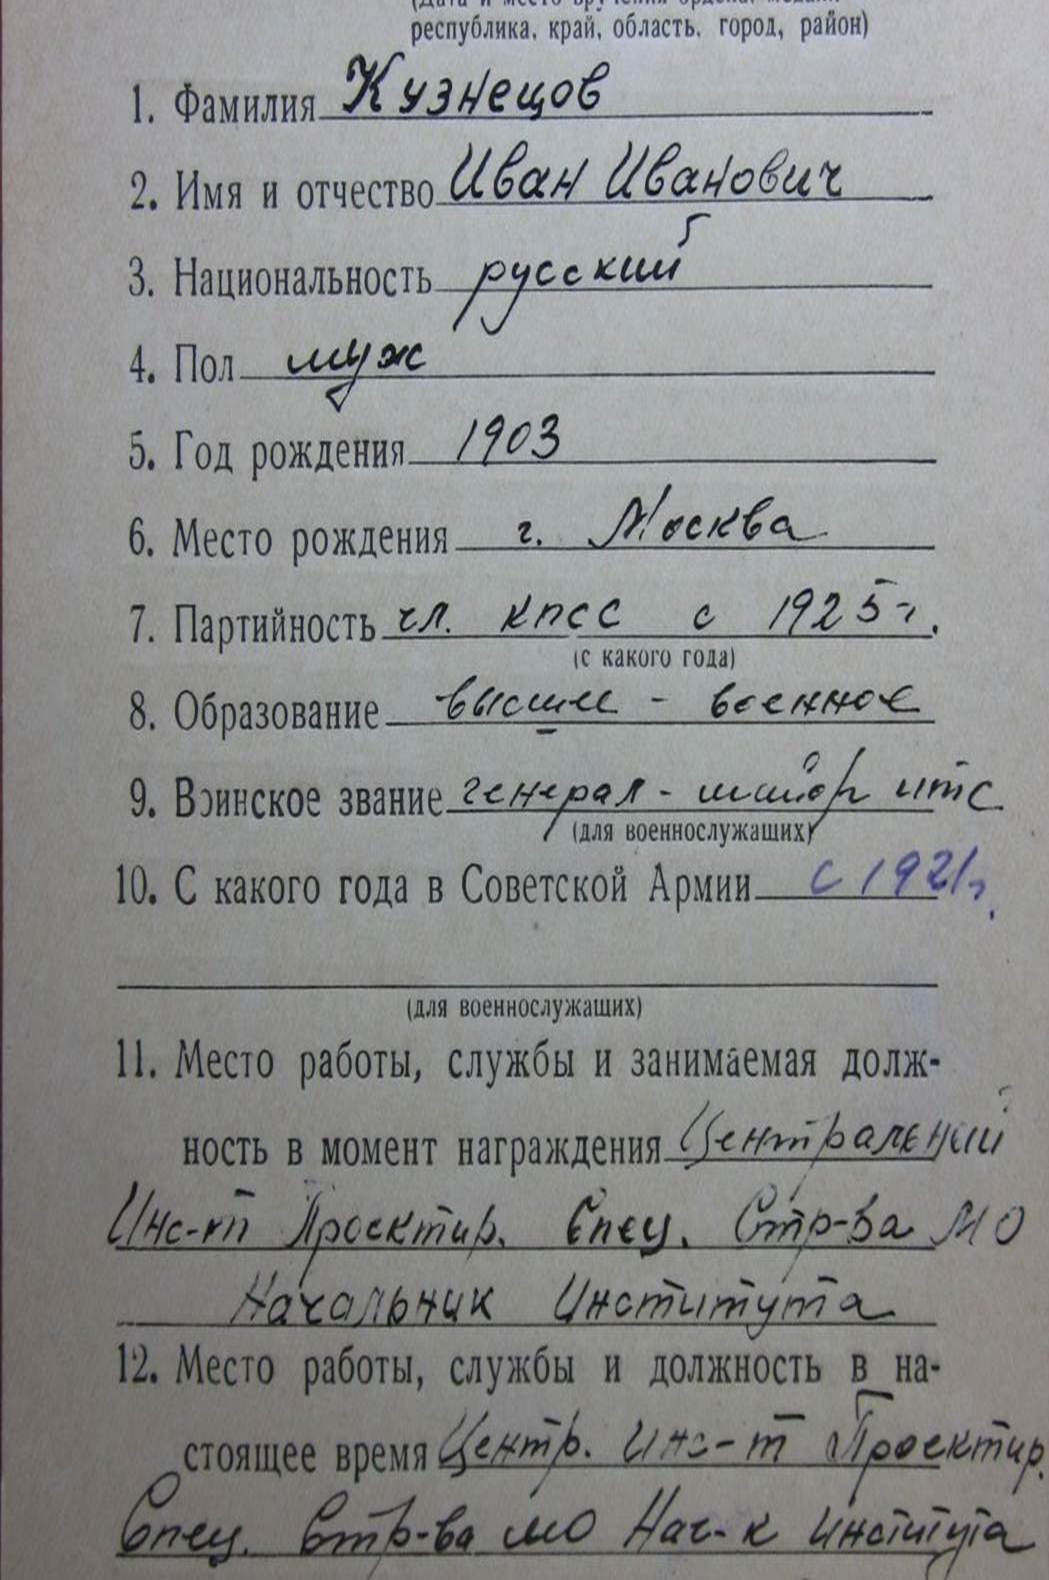 (Дата и место вручения ордена, медали
республика, край, область, город, район)
1. Фамилия Кузнецов
2. Имя и отчество Иван Иванович
3. Национальность русский
4. Пол муж
5. Год рождения 1903
6. Место рождения г. Москва
7. Партийность чл. КПСС с 1925 г.
(с какого года)
8. Образование высшее - военное
9. Воинское звание генерал-майор итс
(для военнослужащих)
10. С какого года в Советской Армии с 1921 г.
(для военнослужащих)
11. Место работы, службы и занимаемая долж-
ность в момент награждения Центральный
Инс-т Проектир. Спец. Стр-ва МО
Начальник Института
12. Место работы, службы и должность в на-
стоящее время Центр. Инс-т Проектир.
Спец. Стр-ва МО Нач-к Института